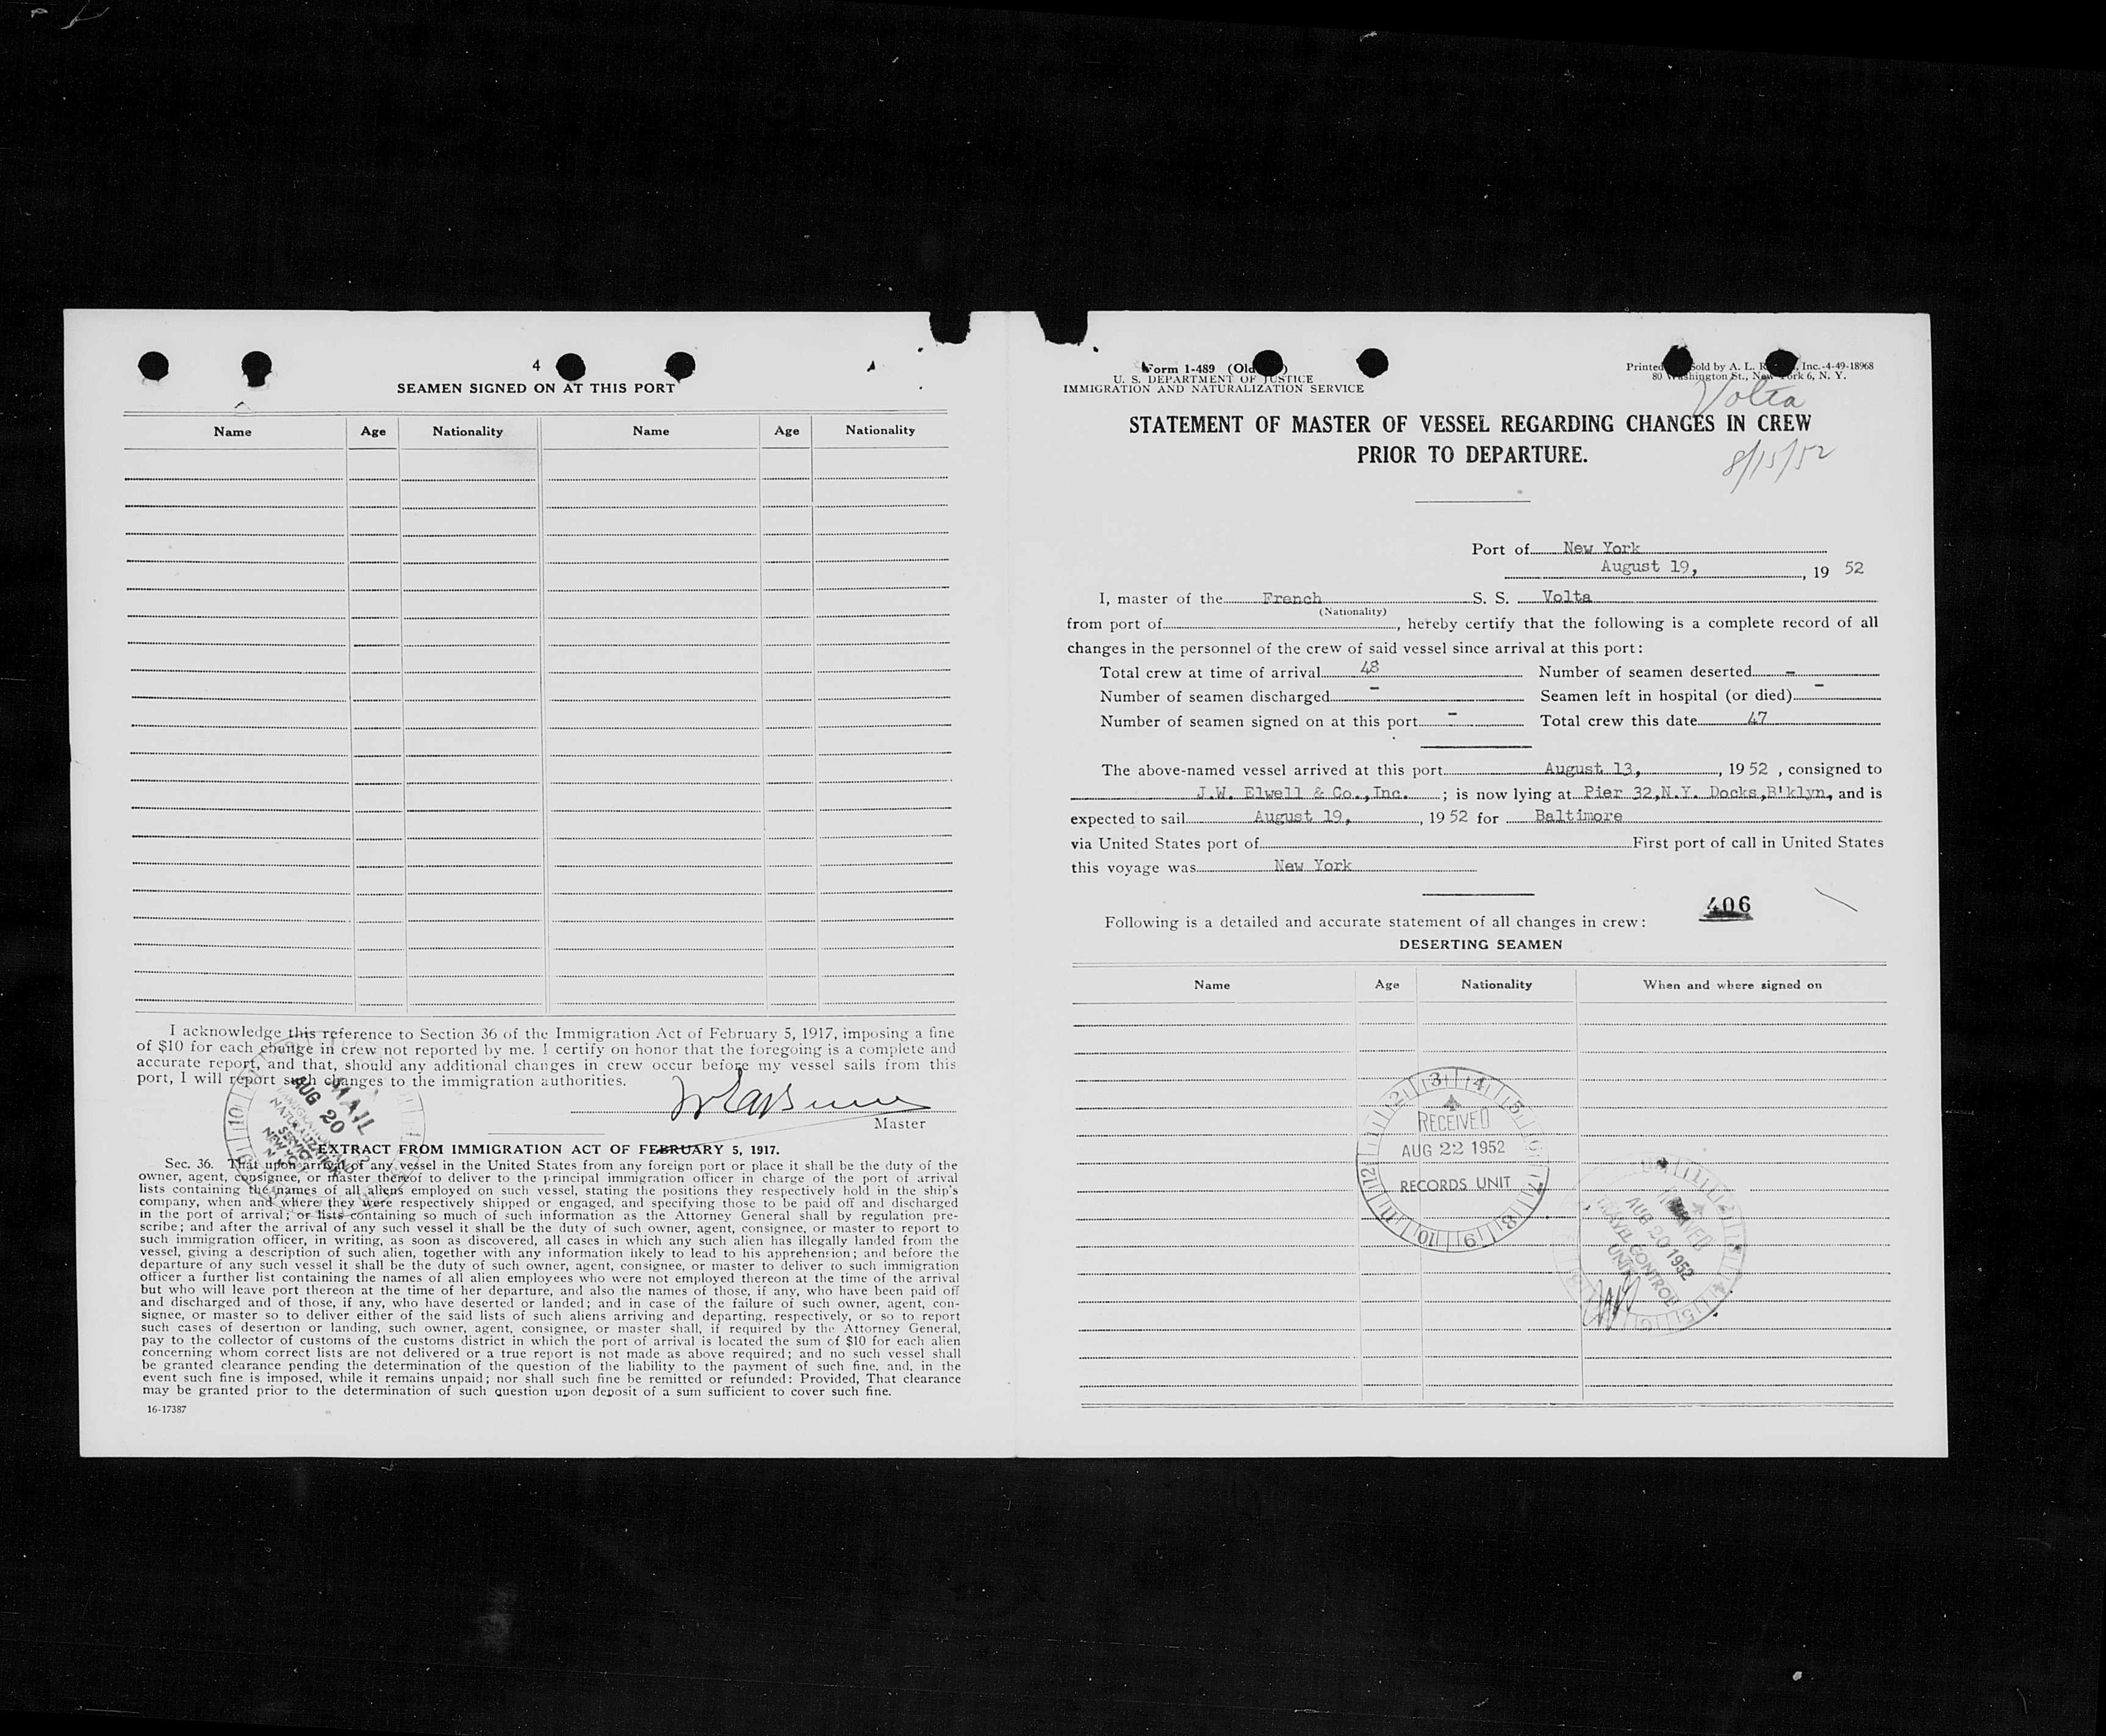 4
SEAMEN SIGNED ON AT THIS PORT
Name Age Nationality Name Age Nationality
I acknowledge this reference to Section 36 of the Immigration Act of February 5, 1917, imposing a fine
of $10 for each change in crew not reported by me. I certify on honor that the foregoing is a complete and
accurate report, and that, should any additional changes in crew occur before my vessel sails from this
port, I will report such changes to the immigration authorities.
Master
MAIL
AUG 20
IMMIGRATION AND
NATURALIZATION
SERVICE
NEW YORK
EXTRACT FROM IMMIGRATION ACT OF FEBRUARY 5, 1917.
Sec. 36. That upon arrival of any vessel in the United States from any foreign port or place it shall be the duty of the
owner, agent, consignee, or master thereof to deliver to the principal immigration officer in charge of the port of arrival
lists containing the names of all aliens employed on such vessel, stating the positions they respectively hold in the ship's
company, when and where they were respectively shipped or engaged, and specifying those to be paid off and discharged
in the port of arrival; or lists containing so much of such information as the Attorney General shall by regulation pre-
scribe; and after the arrival of any such vessel it shall be the duty of such owner, agent, consignee, or master to report to
such immigration officer, in writing, as soon as discovered, all cases in which any such alien has illegally landed from the
vessel, giving a description of such alien, together with any information likely to lead to his apprehension; and before the
departure of any such vessel it shall be the duty of such owner, agent, consignee, or master to deliver to such immigration
officer a further list containing the names of all alien employees who were not employed thereon at the time of the arrival
but who will leave port thereon at the time of her departure, and also the names of those, if any, who have been paid off
and discharged and of those, if any, who have deserted or landed; and in case of the failure of such owner, agent, con-
signee, or master so to deliver either of the said lists of such aliens arriving and departing, respectively, or so to report
such cases of desertion or landing, such owner, agent, consignee, or master shall, if required by the Attorney General,
pay to the collector of customs of the customs district in which the port of arrival is located the sum of $10 for each alien
concerning whom correct lists are not delivered or a true report is not made as above required; and no such vessel shall
be granted clearance pending the determination of the question of the liability to the payment of such fine, and, in the
event such fine is imposed, while it remains unpaid; nor shall such fine be remitted or refunded: Provided, That clearance
may be granted prior to the determination of such question upon deposit of a sum sufficient to cover such fine.
16-17387
Form 1-489 (Old
U. S. DEPARTMENT OF JUSTICE
IMMIGRATION AND NATURALIZATION SERVICE
Printed Sold by A. L. Inc.-4-49-18968
80 Washington St., New York 6, N. Y.
Volta
STATEMENT OF MASTER OF VESSEL REGARDING CHANGES IN CREW
PRIOR TO DEPARTURE.
8/15/52
Port of New York
August 19, , 19 52
I, master of the French S. S. Volta
(Nationality)
from port of , hereby certify that the following is a complete record of all
changes in the personnel of the crew of said vessel since arrival at this port:
Total crew at time of arrival 48 Number of seamen deserted -
Number of seamen discharged - Seamen left in hospital (or died) -
Number of seamen signed on at this port - Total crew this date 47
The above-named vessel arrived at this port August 13, , 19 52 , consigned to
J.W. Elwell & Co., Inc. ; is now lying at Pier 32,N.Y. Docks,B'klyn, and is
expected to sail August 19, , 19 52 for Baltimore
via United States port of First port of call in United States
this voyage was New York
406
Following is a detailed and accurate statement of all changes in crew:
DESERTING SEAMEN
Name Age Nationality When and where signed on
RECEIVED
AUG 22 1952
RECORDS UNIT
AUG 20 1952
TRAVEL CONTROL
UNIT